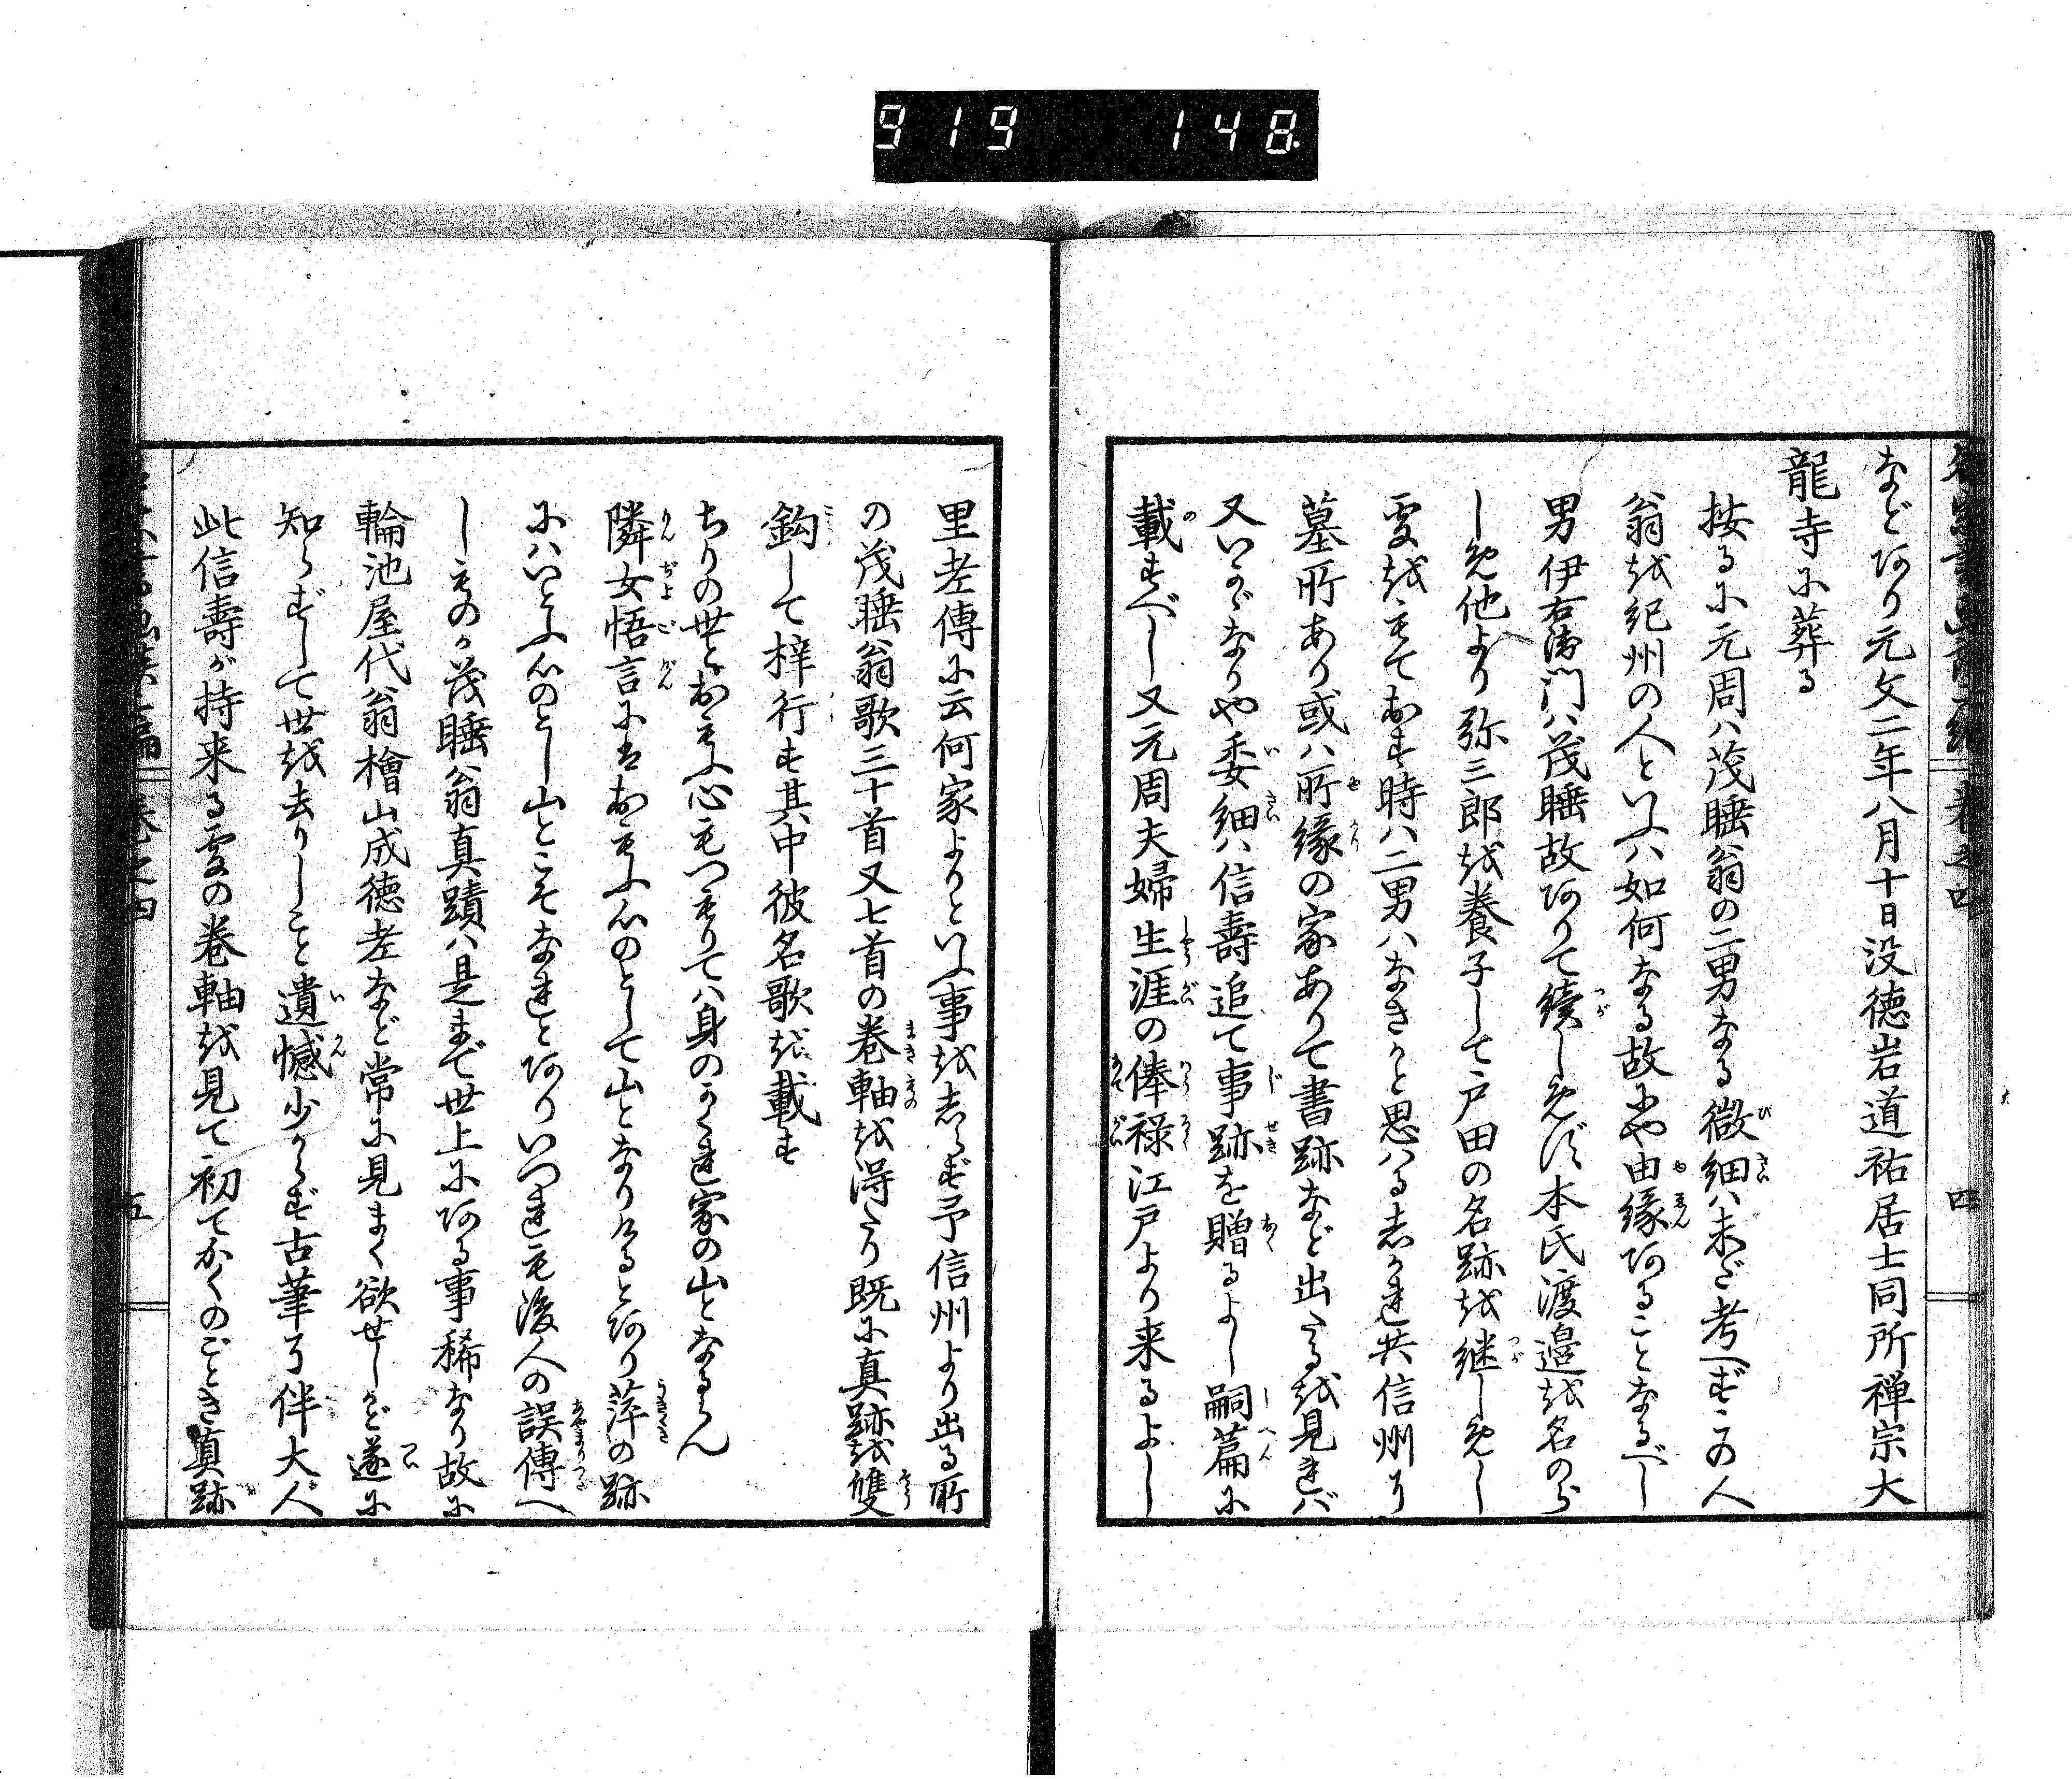 919 148
など阿り元文二年八月十日没徳岩道祐居士同所禅宗大
龍寺に葬る
按るに元周ハ茂睡翁の二男なる微細ハ未だ考へずこの人
翁を紀州の人といふハ如何なる故にや由縁阿ることなるべし
男伊右衛門ハ茂睡故阿りて続しめず本氏渡邉を名のら
しめ他より弥三郎を養子して戸田の名跡を継しめし
処をもておす時ハ二男ハなきかと思ハる志かれ共信州に
墓所あり或ハ所縁の家ありて書跡など出たるを見れバ
又いかゞなりや委細ハ信壽追て事跡を贈るよし嗣篇に
載すべし又元周夫婦生涯の俸禄江戸より来るよし
里老傳に云何家よりといふ事を志らず予信州より出る所
の茂睡翁歌三十首又七首の巻軸を得たり既に真跡を雙
鈎して梓行す其中彼名歌を載す
ちりの世とおもふ心もつもりてハ身のかくれ家の山となるらん
隣女悟言にはおもふ心のとして山となりけると阿り萍の跡
にハいとふ心のとし山とこそなれと阿りいつれも後人の誤傳へ
しものか茂睡翁真蹟ハ是まで世上に阿る事稀なり故に
輪池屋代翁檜山成徳老など常に見まく欲せしかど遂に
知らずして世を去りしこと遺憾少からず古筆了伴大人
此信壽が持来る処の巻軸を見て初てかくのごとき真跡
巻之四
五
巻之四
四